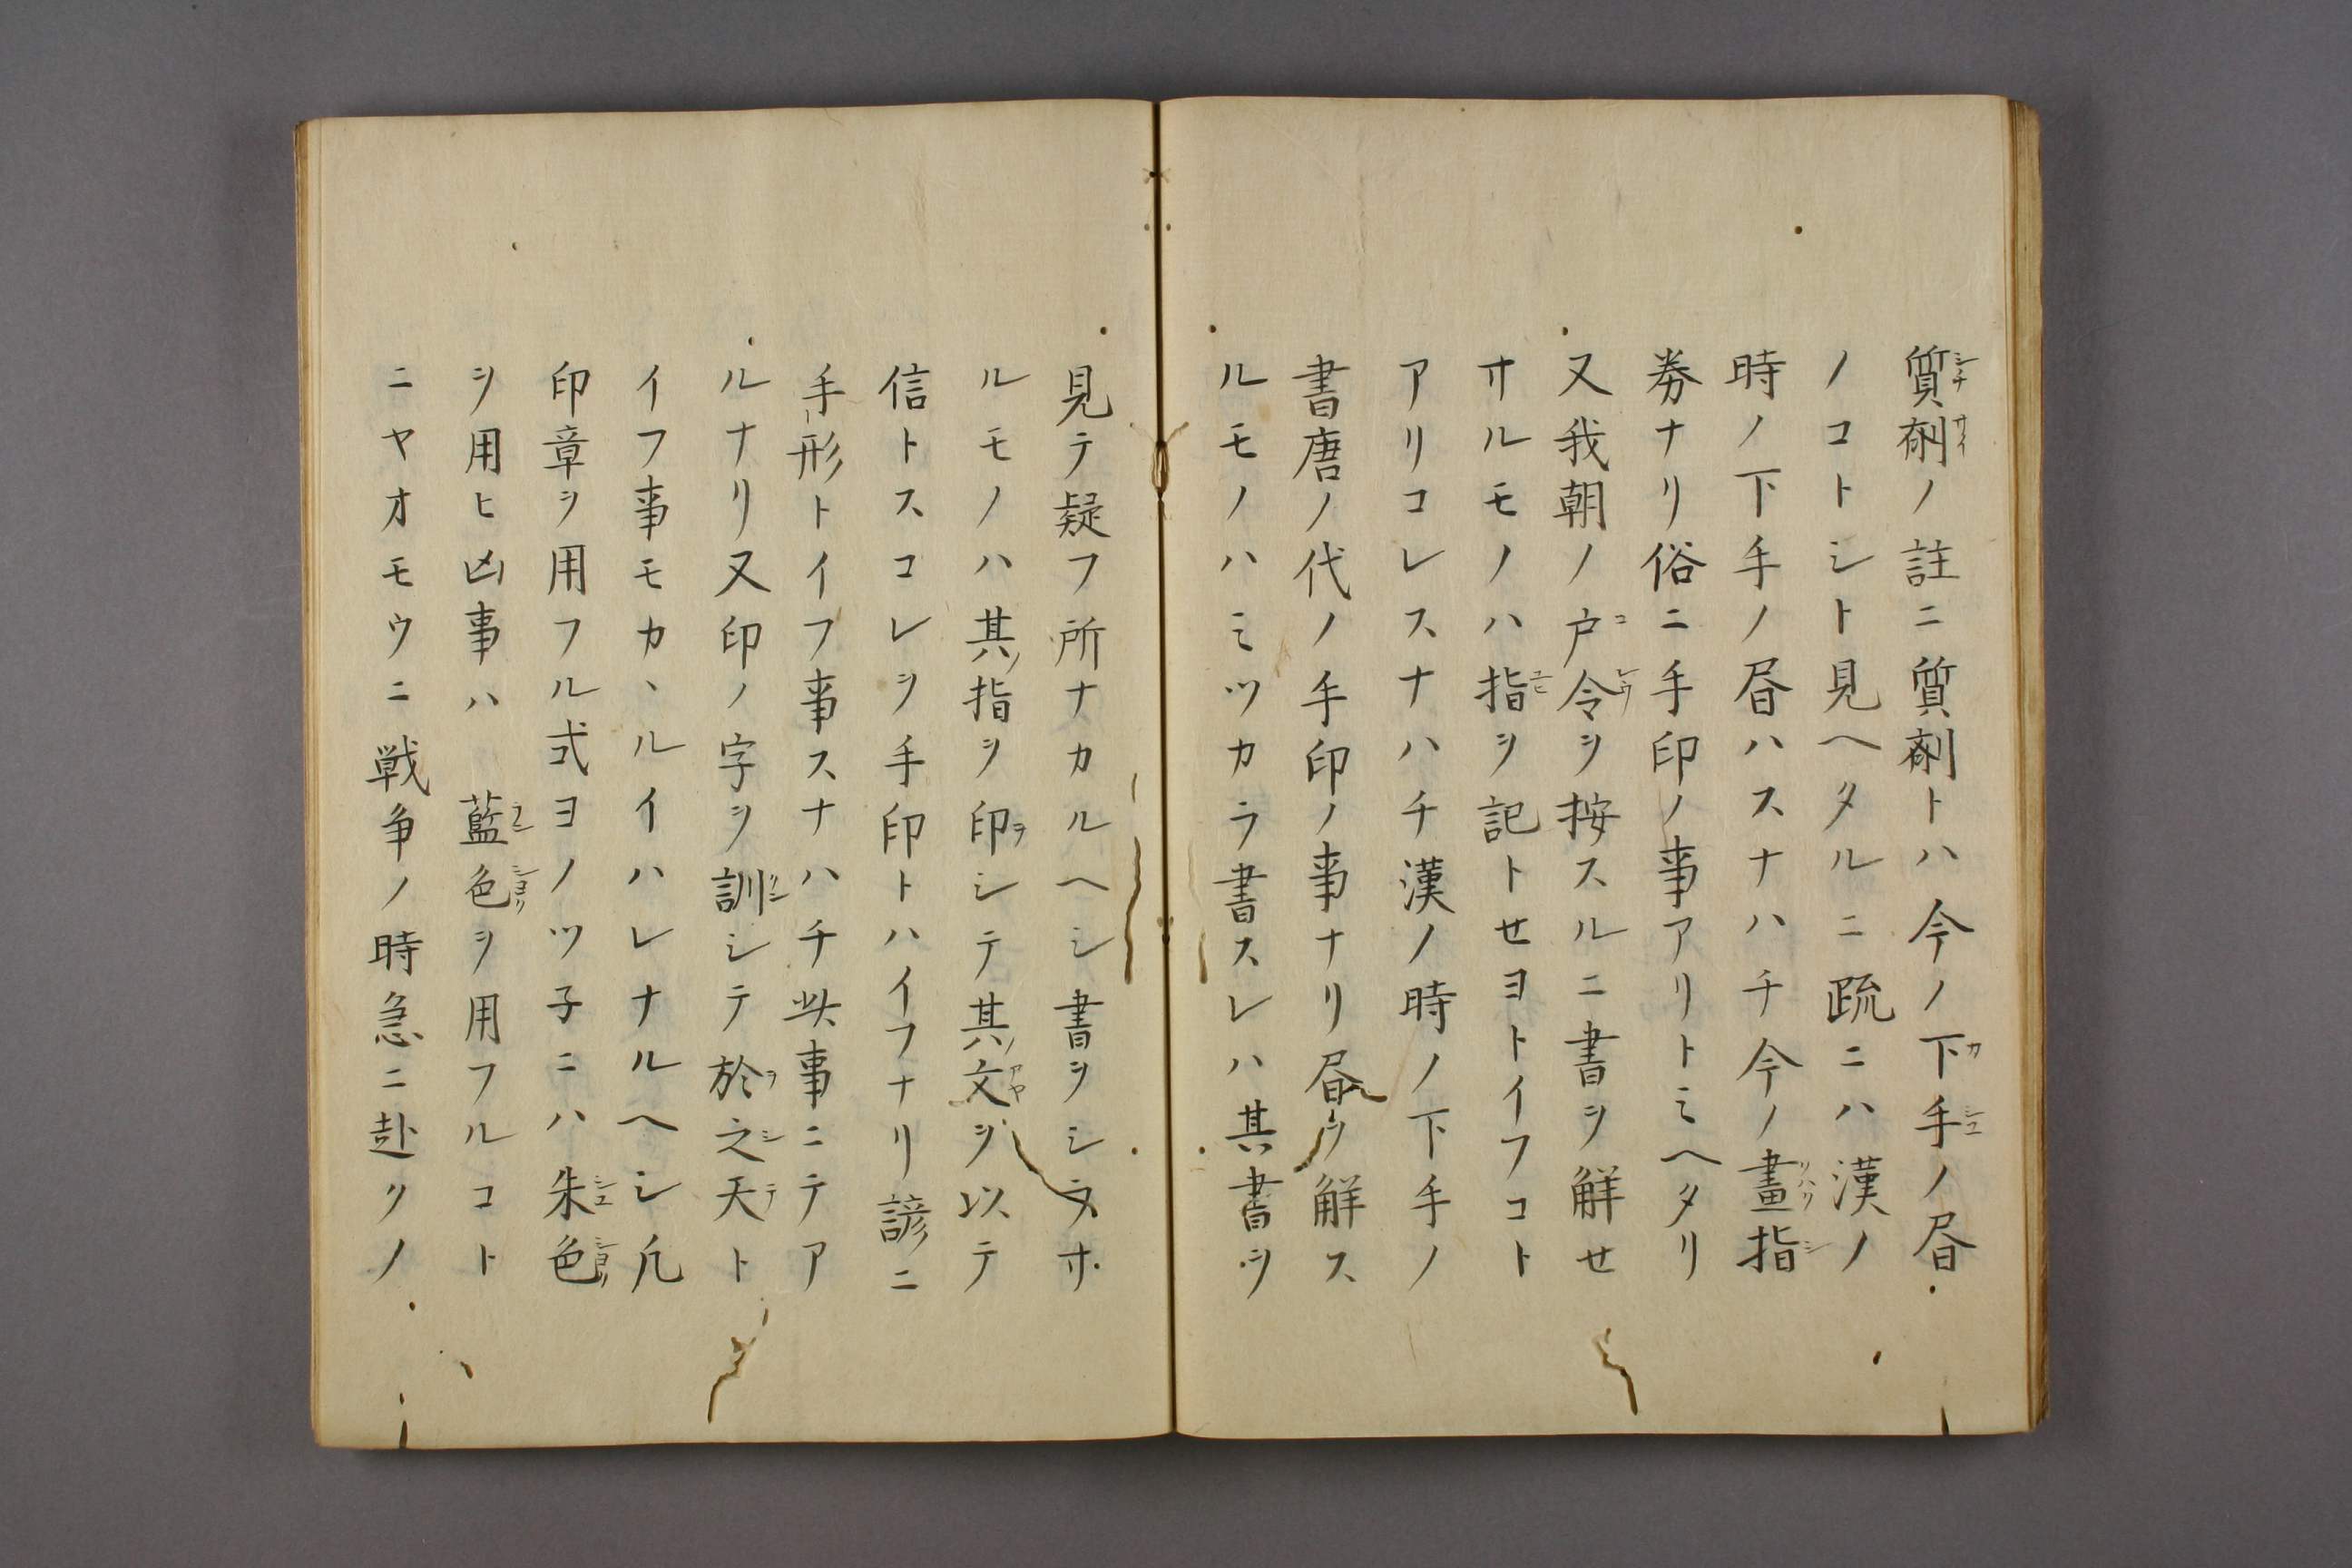 質劑ノ註ニ質劑トハ今ノ下手ノ昏
ノコトシト見ヘタルニ疏ニハ漢ノ
時ノ下手ノ昏ハスナハチ今ノ畫指
券ナリ俗ニ手印ノ事アリトミヘタリ
又我朝ノ戸令ヲ按スルニ書ヲ解セ
サルモノハ指ヲ記トセヨトイフコト
アリコレスナハチ漢ノ時ノ下手ノ
書唐ノ代ノ手印ノ事ナリ昏ヲ解ス
ルモノハミツカラ書スレハ其書ヲ
見テ疑フ所ナカルヘシ書ヲシラサ
ルモノハ其指ヲ印シテ其文ヲ以テ
信トスコレヲ手印トハイフナリ諺ニ
手形トイフ事スナハチ此事ニテア
ルナリ又印ノ字ヲ訓シテ於之天ト
イフ事モカヽルイハレナルヘシ凡
印章ヲ用フル式ヨノツ子ニハ朱色
ヲ用ヒ凶事ハ藍色ヲ用フルコト
ニヤオモウニ戦争ノ時急ニ赴クノ